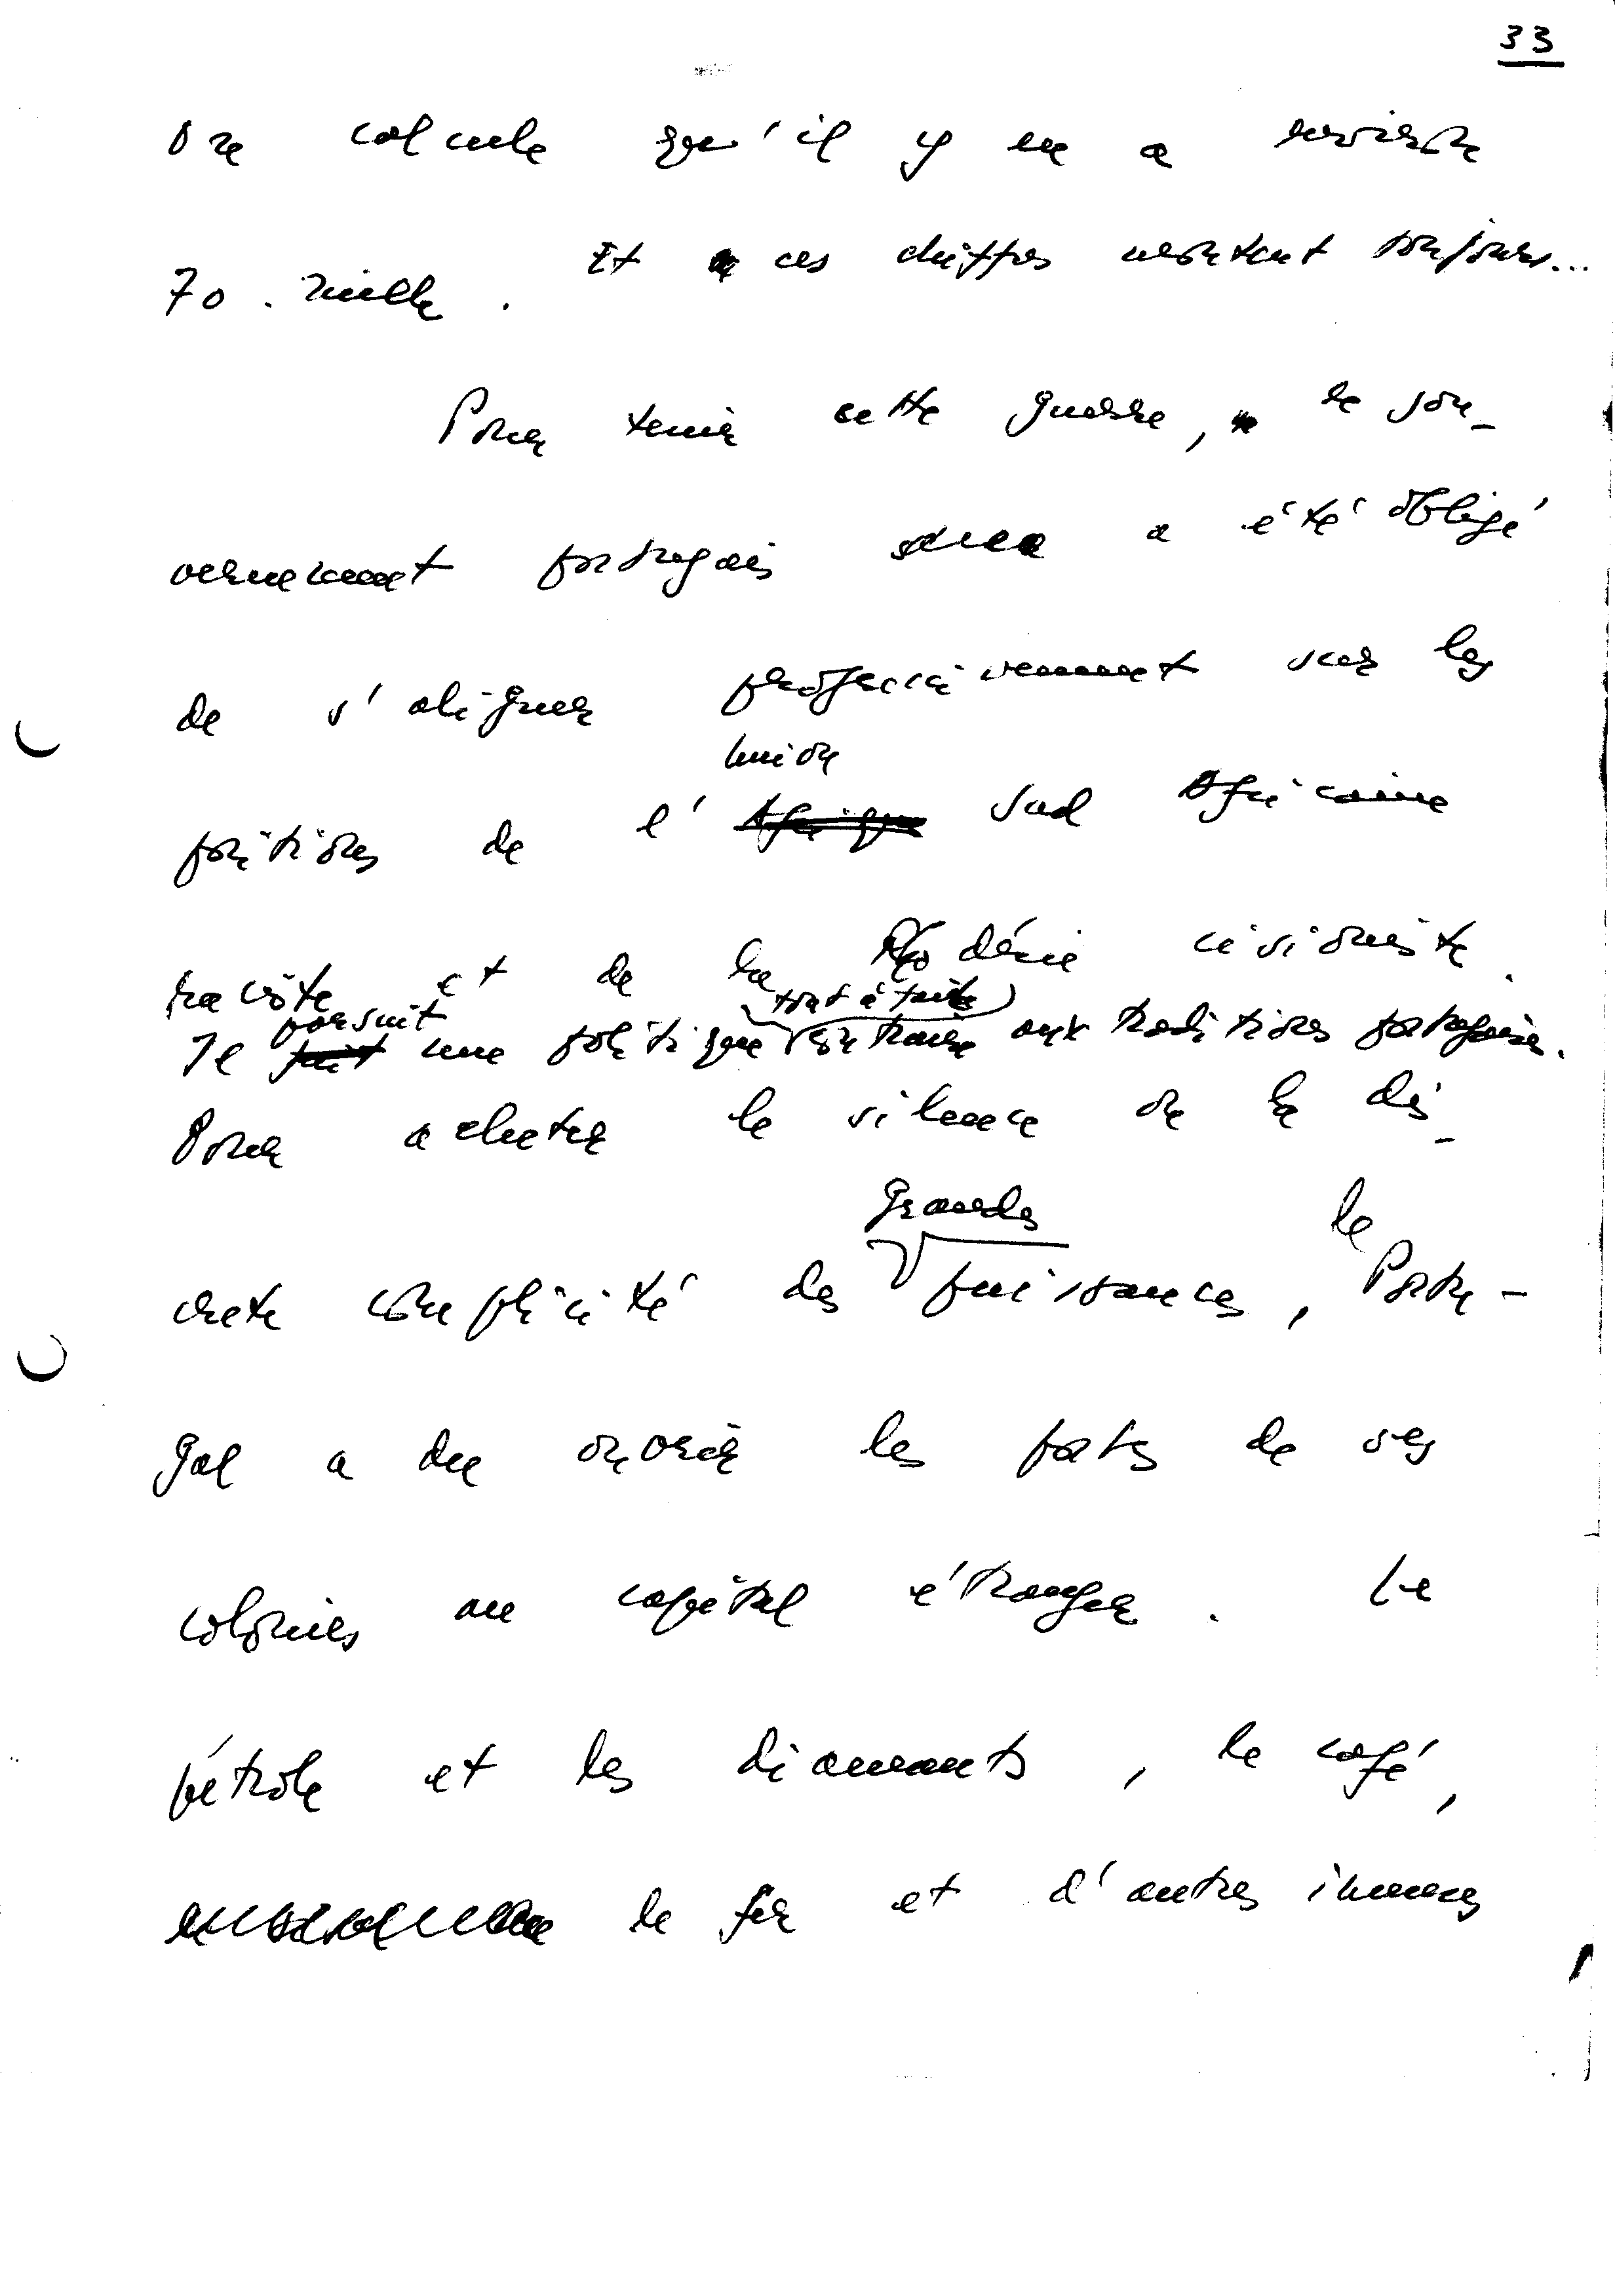 33
on calcule qu'il y en a environ
70. mille. Et ces chiffres montent toujours...
Pour tenir cette guerre, le gou-
vernement portugais a été obligé
de s'aligner progressivement sur les
union
positions de l' Afrique Sud Africaine
raciste et de la Rhodésie
poursuit tout à fait
Il fait une politique contraire aux traditions portugaises.
Pour acheter le silence ou la dis-
grandes le
crete complicité des puissances, Portu-
gal a du ouvrir les portes de ses
colonies au capital étranger. Le
pétrole et les diamants, le café,
le fer et d'autres immenses